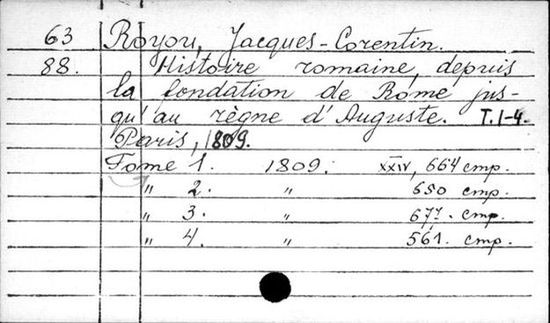 63 Royou, Jacques-Corentin.
88. Histoire romaine, depuis
la fondation de Rome jus-
qu'au règne d'Auguste. T.1-4.
Paris, 1809.
Tome 1. 1809. XXIV, 664 стр.
" 2. " 650 стр.
" 3. " 677. стр.
" 4. " 561. стр.